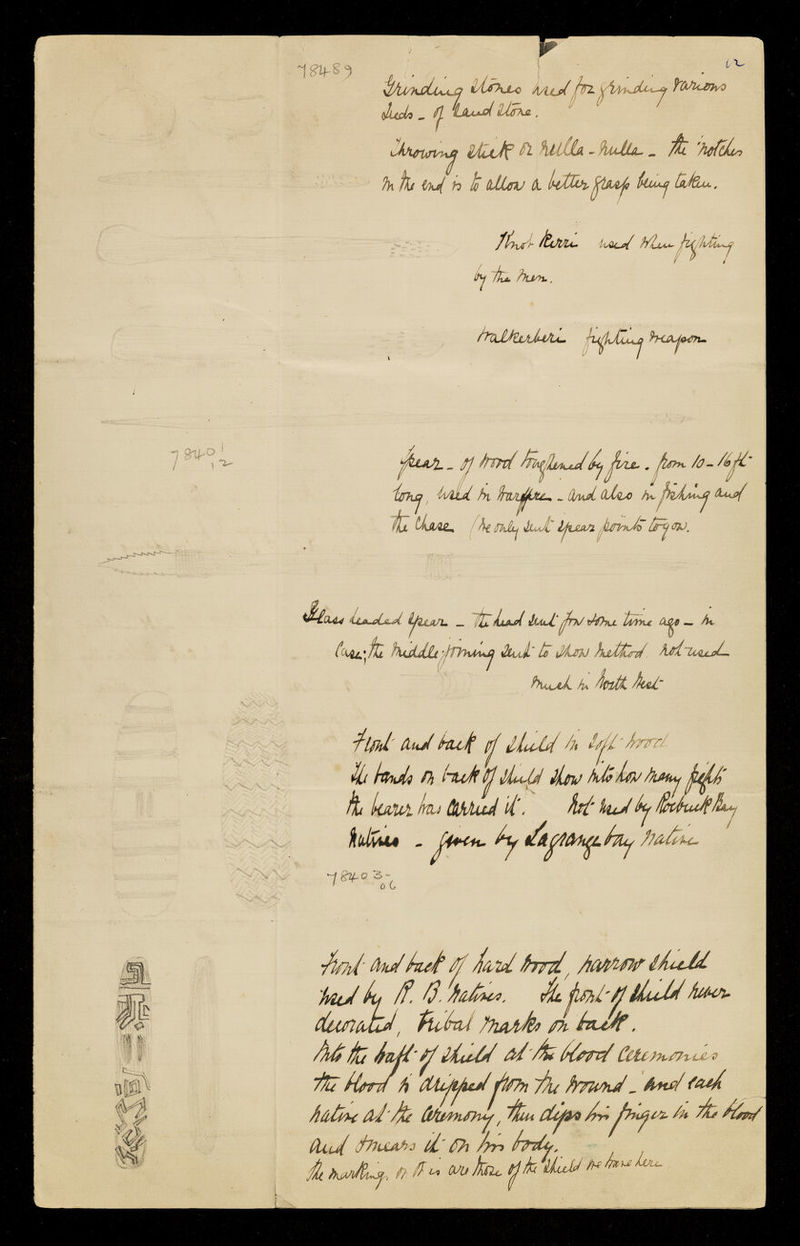 12
78489
Grinding stones used for grinding various
seeds - of sand stone.
Throwing stick or nulla-nulla - the notches
in the end is to allow a better grasp being taken.
Knot Kerri used when fighting
by the men.
Walkerberi fighting weapon
78401
12
Spear - of wood toughened by fire. from 10-16 ft
long, used in warfare - and also in fishing and
the chase (We only sent spear points to you.
Glass headed spear - the head sent you some time ago - in
case; the middle joining sent to show method not used
much in North West
Front and back of shield in soft wood
The bands on back of shield show into how many fights
the bearer has carried it. Not used by Roebuck Bay
natives - given by Lagrange bay native
78403-
06
Front and back of hard wood, narrow shield
used by R. B. natives. The front of shield never
decorated, tribal marks on back.
Into the haft of shield at the blood ceremonies
the blood is dripped from the wound - and each
native at the ceremony, then dips his finger in the blood
and smears it on his body.
the marking, on it is are those of the shield we have here